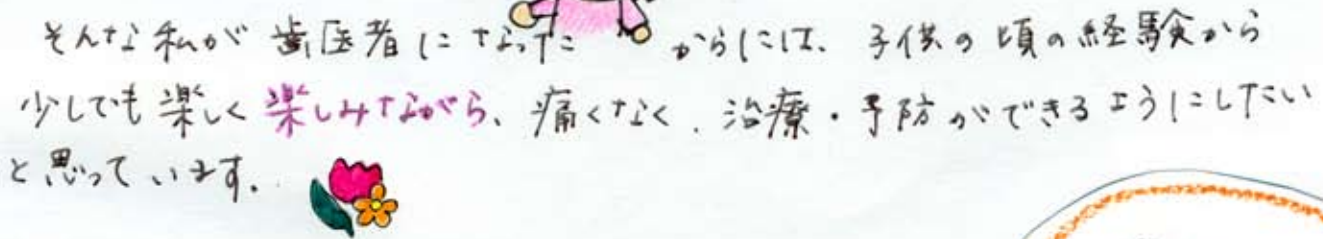 そんな私が歯医者になったからには、子供の頃の経験から
少しでも楽しく楽しみながら、痛くなく、治療・予防ができるようにしたい
と思っています。